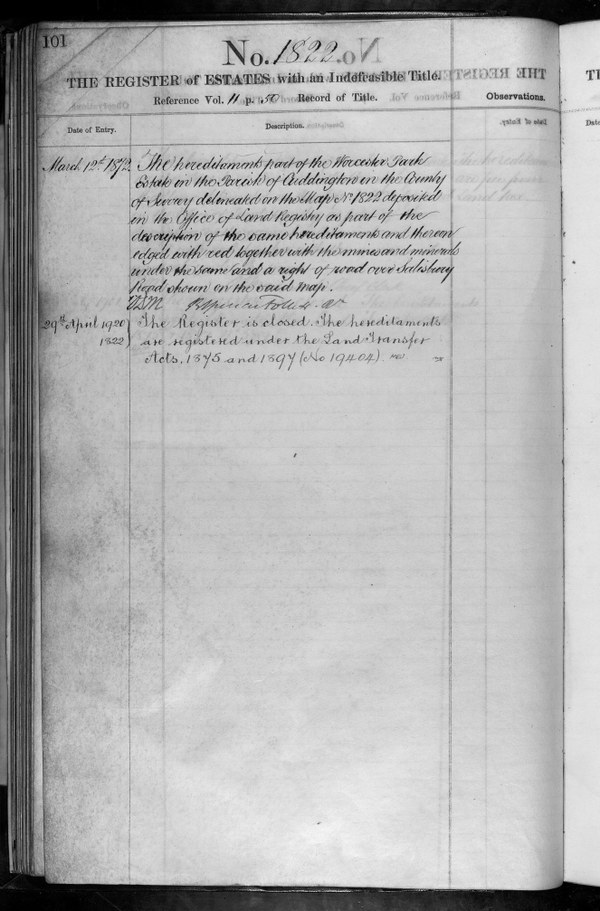 101
No. 1822.
THE REGISTER of ESTATES with an Indefeasible Title.
Reference Vol. 11 p. 50 Record of Title.
Observations.
Date of Entry.
Description.
March 12th 1872
The hereditaments part of the Worcester Park
Estate in the Parish of Cuddington in the County
of Surrey delineated on the Map No 1822 deposited
in the Office of Land Registry as part of the
description of the same hereditaments and thereon
edged with red together with the mines and minerals
under the same and a right of road over Salisbury
Road shown on the said map.
29th April 1920
1822
The Register is closed. The hereditaments
are registered under the Land Transfer
Acts, 1875 and 1897 (No 19404).